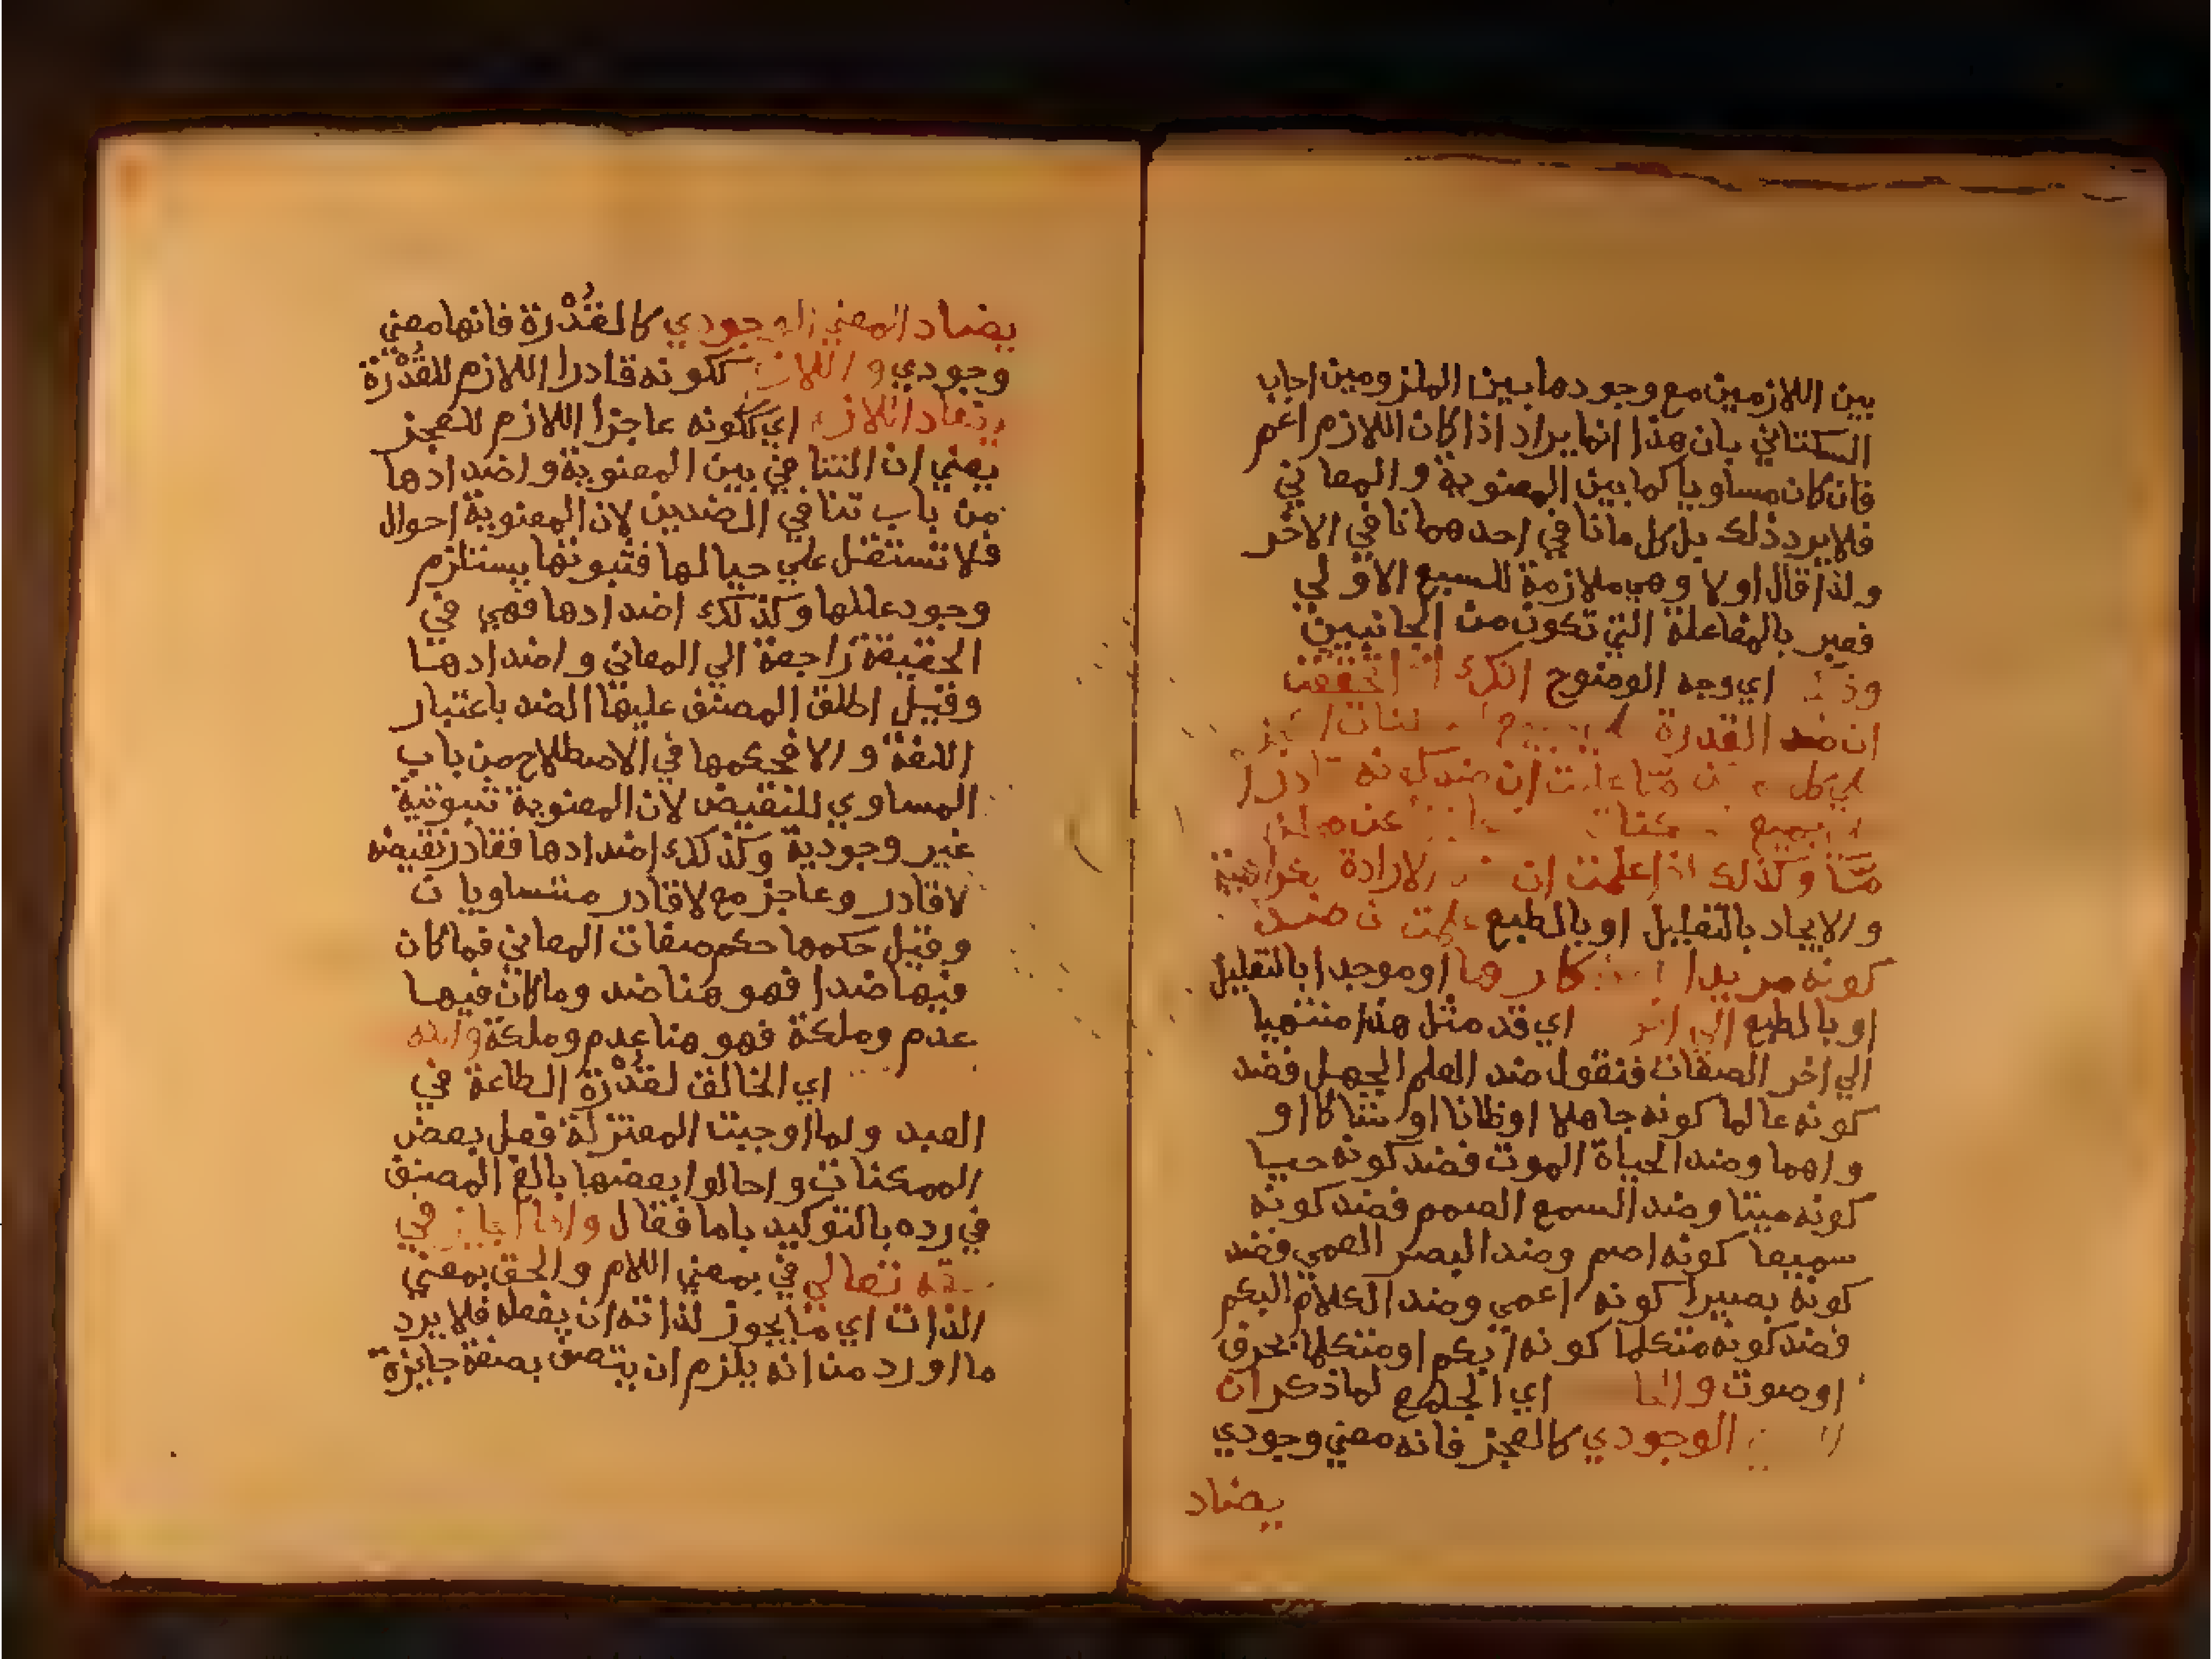 بين اللازمين مع وجودها بين الملزومين اجاب
السكتاني بان هذا انما يراد اذا كان اللازم اعم
فان كان مساويا كما بين المعنوية والمعاني
فلا يرد ذلك بل كل ما نافي احدهما نافي الاخر
ولذا قال اولا وهي ملازمة للسبع الاولي
فعبر بالمفاعلة التي تكون من الجانبين
اي وجه الوضوح انك تحققت
ان ضد القدرة
ان ضد كونه
عن ممكن
ما وكذلك اذا علمت ان الارادة
والايجاد بالتعليل او بالطبع علمت ان ضد
كونه مريدا كارها او موجدا بالتعليل
او بالطبع الي اخر اي قد مثل هذا منتهيا
الي اخر الصفات فنقول ضد العلم الجهل فضد
كونه عالما كونه جاهلا او ظانا او شاكا او
واهما وضد الحياة الموت فضد كونه حيا
كونه ميتا وضد السمع الصمم فضد كونه
سميعا كونه اصم وضد البصر العمي فضد
كونه بصيرا كونه اعمي وضد الكلام البكم
فضد كونه متكلما كونه ابكم او متكلما بحرف
او صوت اي الجامع لما ذكر ان
الوجودي كالعجز فانه معني وجودي
يضاد
يضاد المعني الوجودي كالقدرة فانها معني
وجودي و ككونه قادرا اللازم للقدرة
اي ككونه عاجزا اللازم للعجز
يعني ان التنافي بين المعنوية واضدادها
من باب تنافي الضدين لان المعنوية احوال
فلا تستقل علي حيالها فثبوتها يستلزم
وجود عللها وكذلك اضدادها فهي في
الحقيقة راجعة الي المعاني واضدادها
وقيل اطلق المصنف عليها الضد باعتبار
اللغة والا فحكمها في الاصطلاح من باب
المساوي للنقيض لان المعنوية ثبوتية
غير وجودية وكذلك اضدادها فقادر نقيضه
لا قادر وعاجز مع لا قادر متساويان
وقيل حكمها حكم صفات المعاني فما كان
فيها ضدا فهو هنا ضد وما كان فيها
عدم وملكة فهو هنا عدم وملكة
اي الخالق لقدرة الطاعة في
العبد ولما اوجبت المعتزلة فعل بعض
الممكنات واحالوا بعضها بالغ المصنف
في رده بالتوكيد باما فقال واما الجايز في
حقه تعالي في بمعني اللام والحق بمعني
الذات اي ما يجوز لذاته ان يفعله فلا يرد
ما اورد من انه يلزم ان يتصف بصفة جايزة